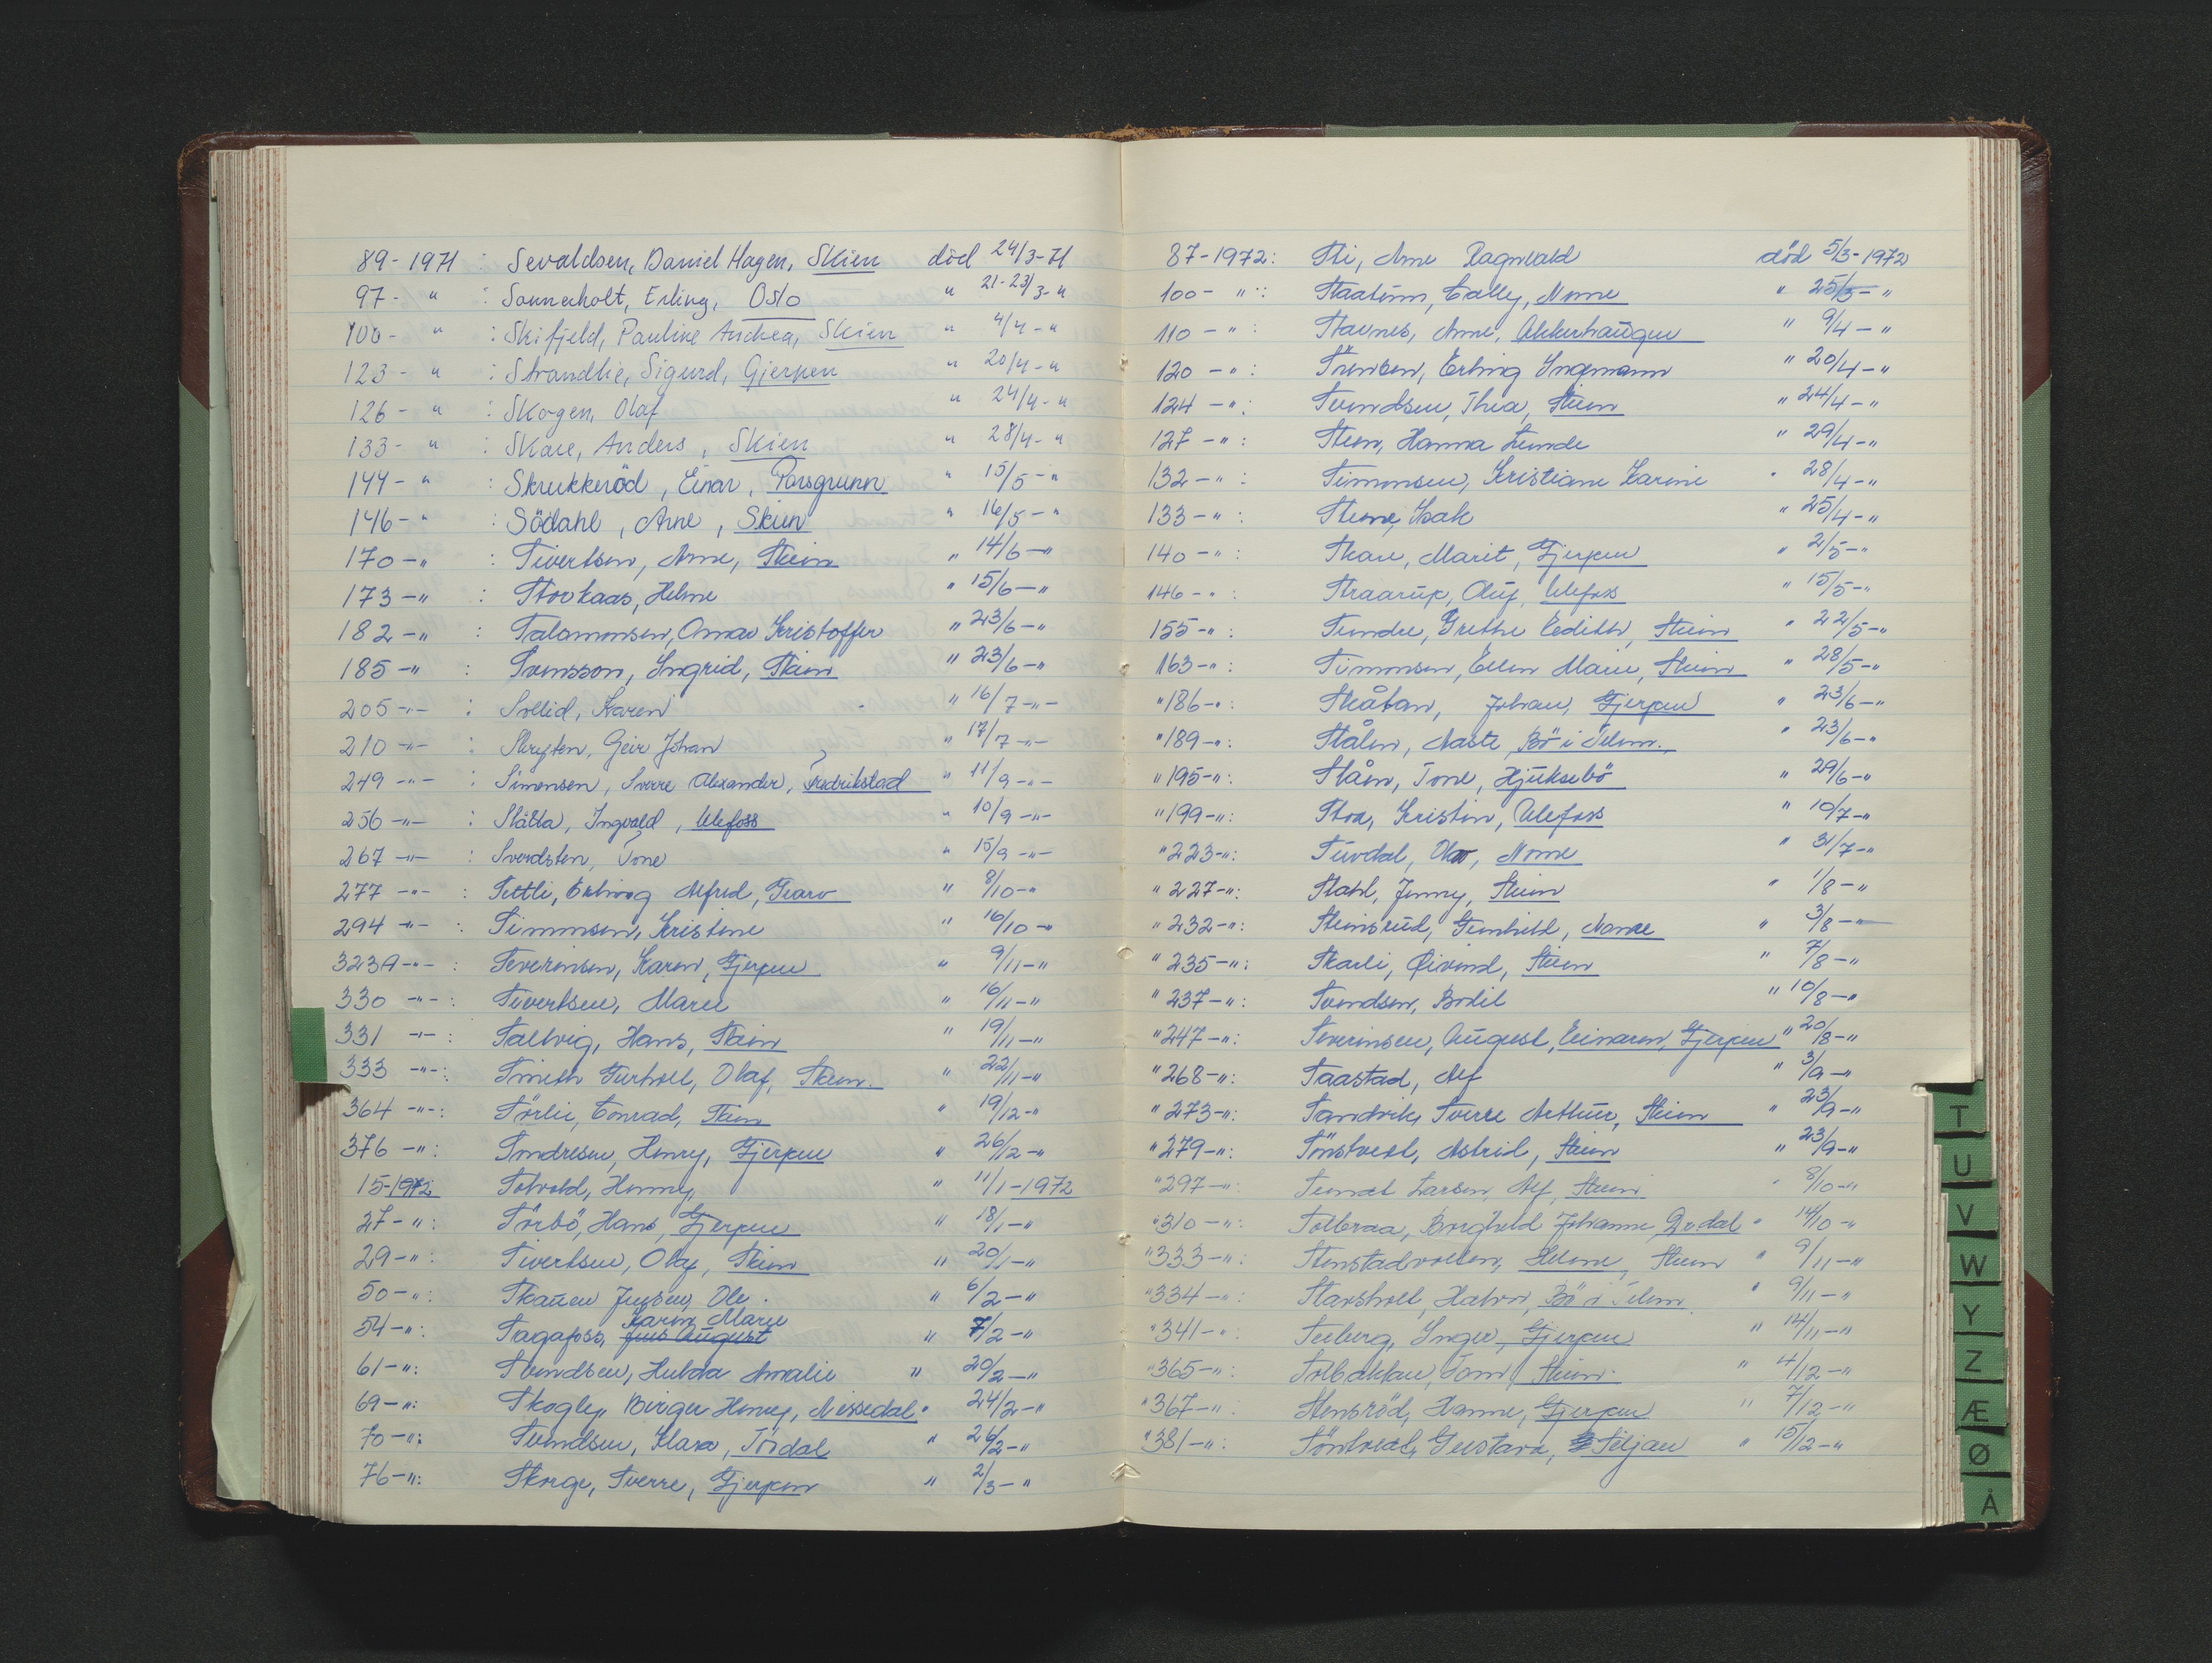 89-1971 : Sevaldsen, Daniel Hagen, Skien død 24/3-71
97- " : Sannerholt, Erling, Oslo " 21-23/3- "
100- " : Skifjeld, Pauline Andrea, Skien " 4/4- "
123- " : Strandlie, Sigurd, Gjerpen " 20/4- "
126- " : Skogen, Olaf " 24/4- "
133- " : Skare, Anders, Skien " 28/4- "
144- " : Skrukkeröd, Einar, Porsgrunn " 15/5- "
146- " : Södahl, Arne, Skien " 16/5- "
170- " : Sivertsen, Arne, Skien " 14/6- "
173- " : Stovkaas, Helme " 15/6- "
182- " : Salamonsen, Omar Kristoffer " 23/6- "
185- " : Svensson, Ingrid, Skien " 23/6- "
205-"- : Sollid, Karen " 16/7-"-
210-"- : Skrepten, Geir Johan " 17/7-"-
249-"- : Simonsen, Sverre Alexander, Fredrikstad " 11/9-"-
256-"- : Slåtta, Ingvald, Ulefoss " 10/9-"-
267-"- : Sverdsten, Tone " 15/9-"-
277-"- : Settli, Erling Alfred, Gvarv " 8/10- "
294-"- : Simonsen, Kristine " 16/10- "
3239-"- : Severinsen, Karen, Gjerpen " 9/11- "
330-"- : Sivertsen, Marie " 16/11- "
331-"- : Saltvig, Hans, Skien " 19/11- "
333-"- : Smith Gurholt, Olaf, Skien. " 22/11- "
364-"- : Sörlie, Conrad, Skien " 19/12- "
376-"- : Sndresen, Henry, Gjerpen " 26/12- "
15-1972 Solvold, Henny, " 11/1-1972
27- " : Sörbö, Hans, Gjerpen " 18/1- "
29- " : Sivertsen, Olaf, Skien " 20/1- "
50- " : Skauen Jensen, Ole. " 6/2- "
Karen Marie
54- " : Sagafoss, Jens August " 7/2- "
61- " : Svendsen, Hulda Amalie " 20/2- "
69- " : Skogly, Birger Henry, Nissedal " 24/2- "
70- " : Svendsen, Klara, Tördal " 26/2- "
76- " : Skorge, Sverre, Gjerpen " 2/3- "
87-1972: Sti, Arne Ragnvald död 5/3-1972
100- " : Staatun, Cally, Nome " 25/3- "
110- " : Stavnes, Anne, Akkerhaugen " 9/4- "
120- " : Sörensen, Erling Ingemann " 20/4- "
124- " : Svendsen, Thea, Skien " 24/4- "
127- " : Steen, Hanna Lunde " 29/4- "
132- " : Simonsen, Kristiane Karine " 28/4- "
133- " : Stene, Isak " 25/4- "
140- " : Skare, Marit, Gjerpen " 2/5- "
146- " : Straarup, Auf, Ulefoss " 15/5- "
155- " : Sundre, Grethe Eedith, Skien " 22/5- "
163- " : Simonsen, Ellen Marie, Skien " 28/5- "
"186- " : Skåtan, Johan, Gjerpen " 23/6- "
"189- " : Stålen, Aaste, Bö i Telem. " 23/6- "
"195- " : Slåen, Tone, Hjuksebö " 29/6- "
"199- " : Stoa, Kristin, Ulefoss " 10/7- "
"223- " : Suvdal, Olav, Nome " 31/7- "
"227- " : Stahl, Jenny, Skien " 1/8- "
"232- " : Steinsrud, Gunhild, Nome " 3/8- "
"235- " : Skarli, Øivind, Skien " 7/8- "
"237- " : Svendsen, Bodil " 10/8- "
"247- " : Severinsen, August, Eimaren, Gjerpen " 20/8- "
"268- " : Saastad, Alf " 3/9- "
"273- " : Sandvik, Sverre Arthur, Skien " 23/9- "
"279- " : Sönstvedt, Astrid, Skien " 23/9- "
"297- " : Sundt Larsen, Alf, Skien " 8/10- "
"310- " : Solbraa, Borghild Johanne, Drdal " 14/10- "
"333- " : Stenstadvolden, Helene, Skien " 9/11- "
"334- " : Starsholt, Halvor, Bö i Telem. " 9/11- "
"341- " : Seeberg, Inger, Gjerpen " 14/11- "
"365- " : Solbakken, Tom, Skien. " 4/12- "
"367- " : Stensröd, Hanne, Gjerpen " 7/12- "
"381- " : Söntvedt, Gustava, Siljan " 15/12- "
T
U
V
W
Y
Z
Æ
Ø
Å